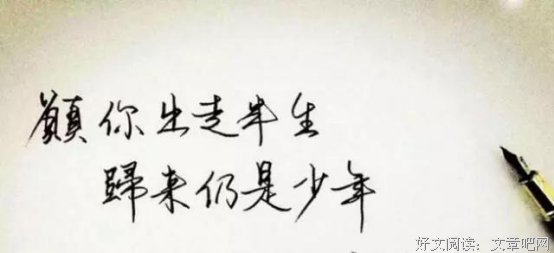 願你出走半生
歸来仍是少年
好文阅读：文章吧网